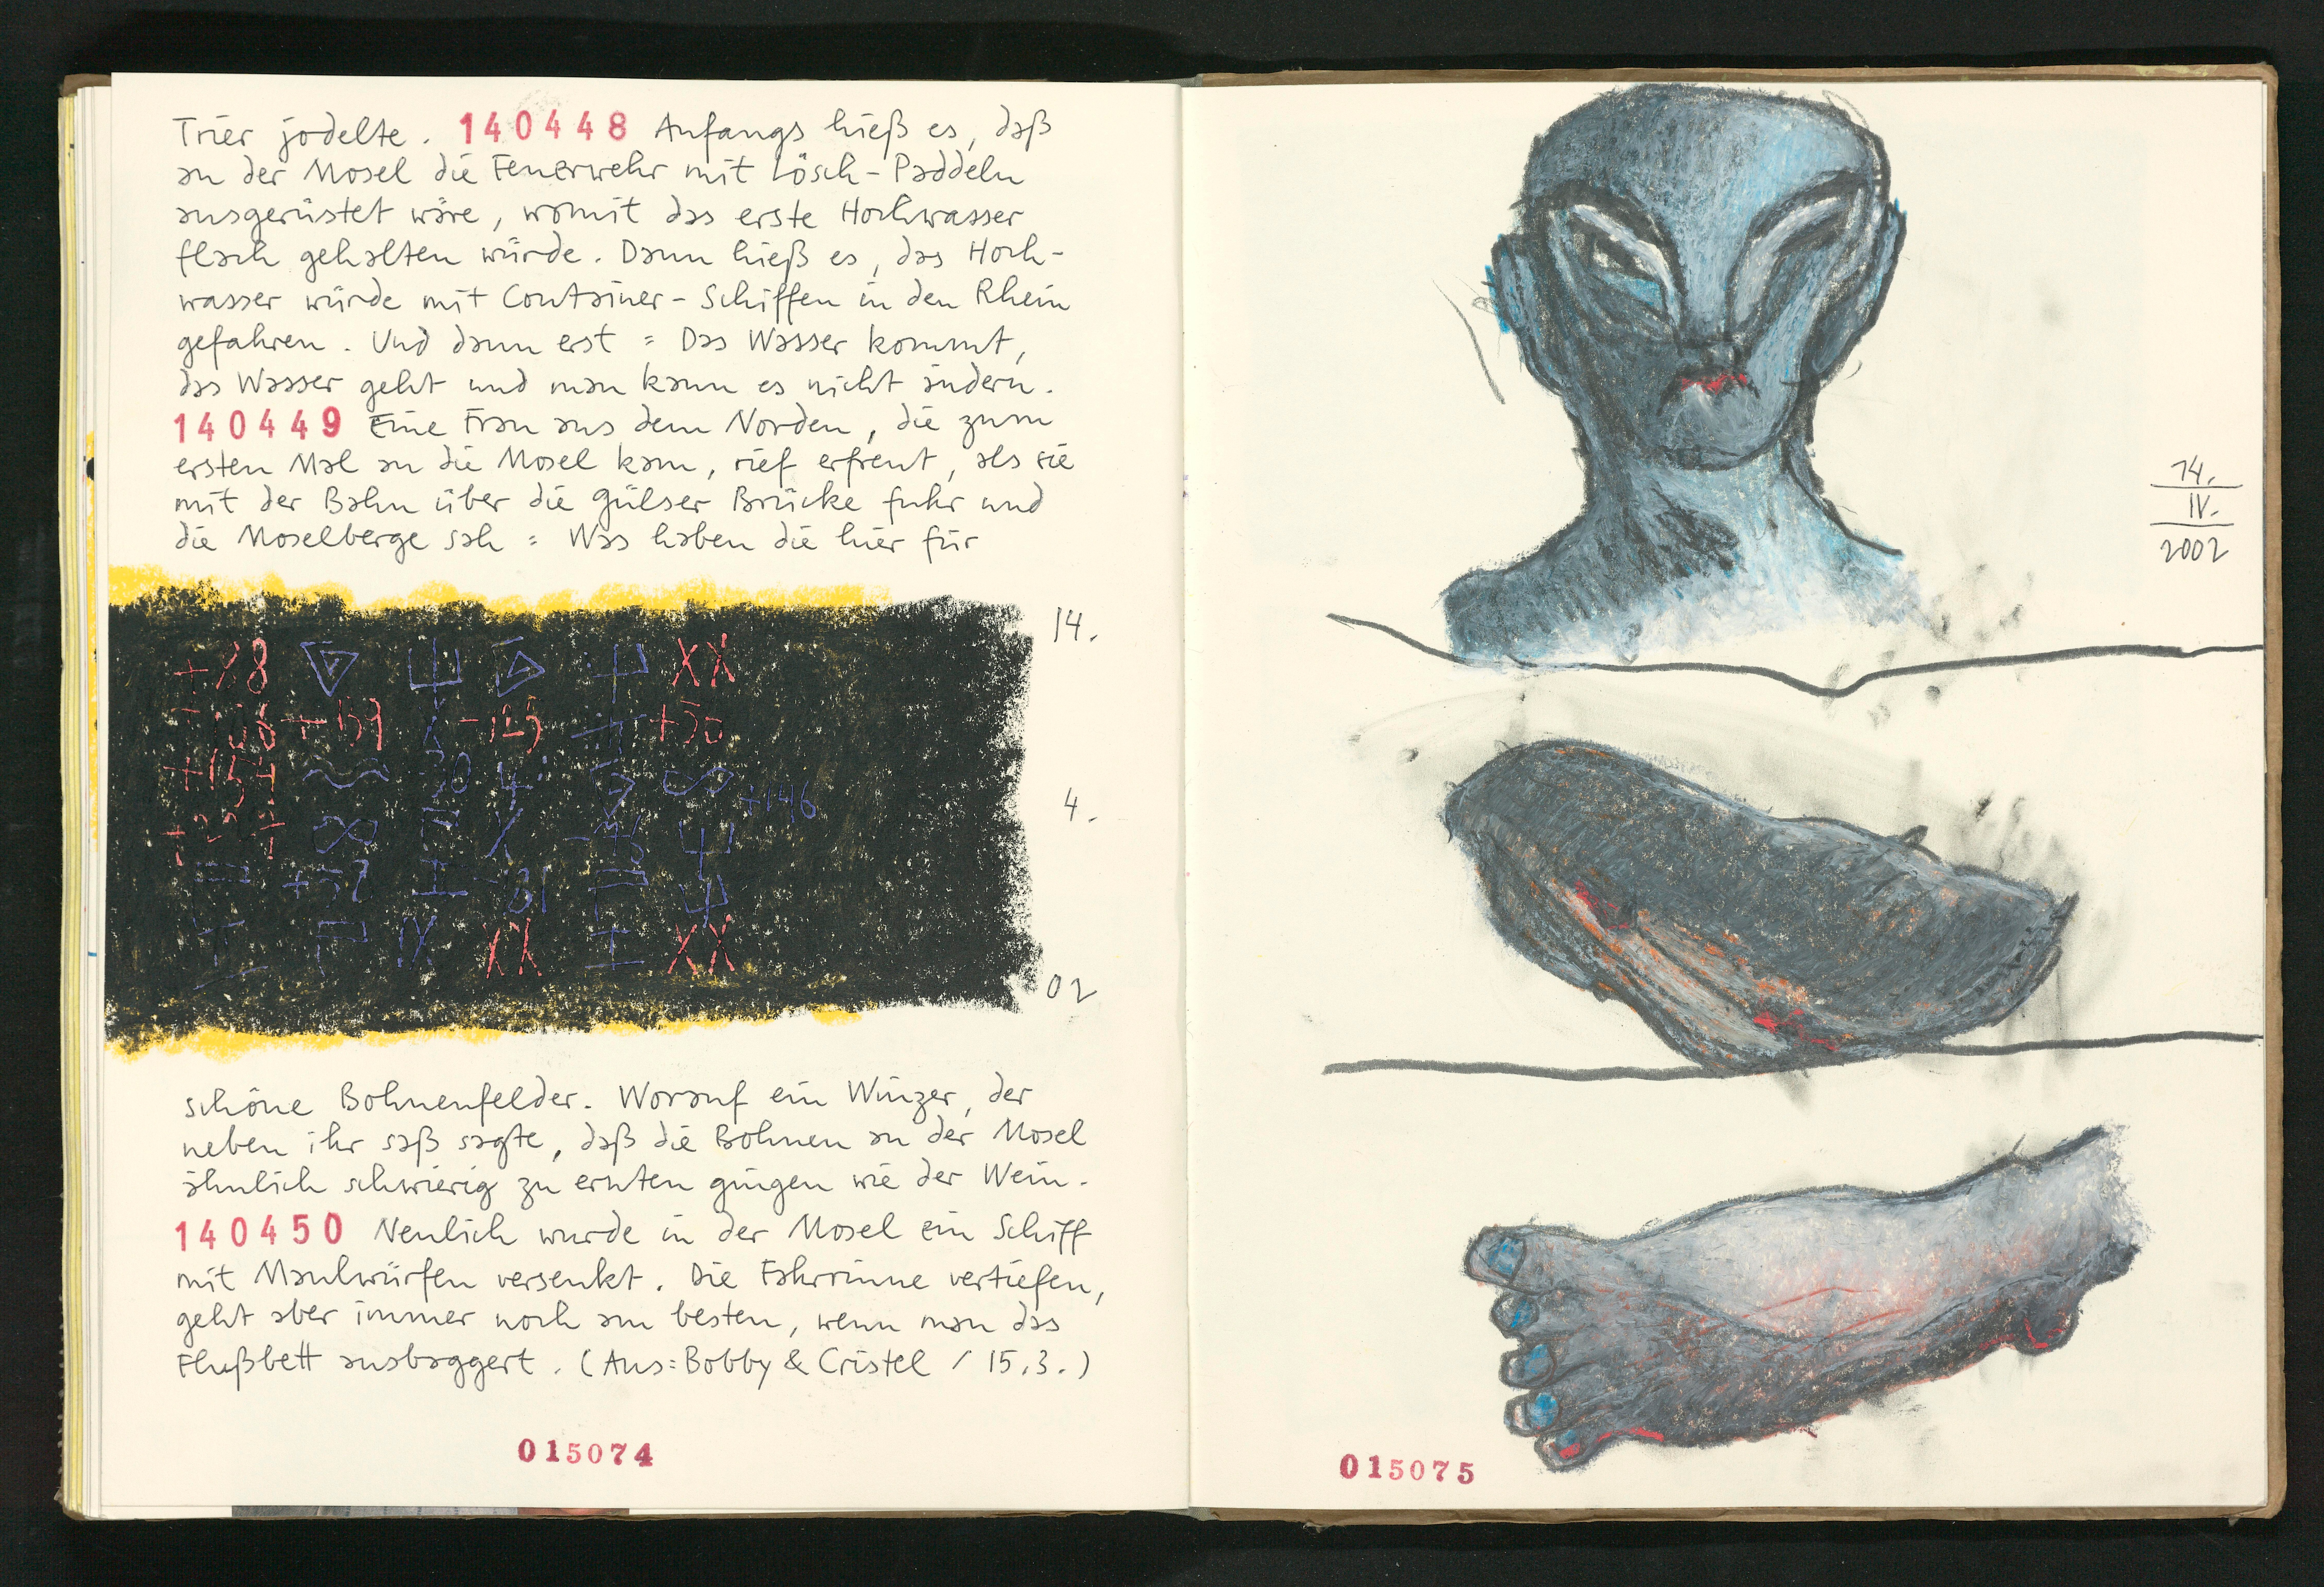 Trier jodelte. 140448 Anfangs hieß es, daß
an der Mosel die Feuerwehr mit Lösch-Paddeln
ausgerüstet wäre, womit das erste Hochwasser
flach gehalten würde. Dann hieß es, das Hoch-
wasser würde mit Container-Schiffen in den Rhein
gefahren. Und dann erst: Das Wasser kommt,
das Wasser geht und man kann es nicht ändern.
140449 Eine Frau aus dem Norden, die zum
ersten Mal an die Mosel kam, rief erfreut, als sie
mit der Bahn über die Gülser Brücke fuhr und
die Moselberge sah: Was haben die hier für
14.
XX
+159 -125 +50
4.
+146
+57 -81
XX XX
02
schöne Bohnenfelder. Worauf ein Winzer, der
neben ihr saß sagte, daß die Bohnen an der Mosel
ähnlich schwierig zu ernten gingen wie der Wein.
140450 Neulich wurde in der Mosel ein Schiff
mit Maulwürfen versenkt. Die Fahrrinne vertiefen,
geht aber immer noch am besten, wenn man das
Flußbett ausbaggert. (Aus: Bobby & Cristel / 15.3.)
015074
14.
IV.
2002
015075